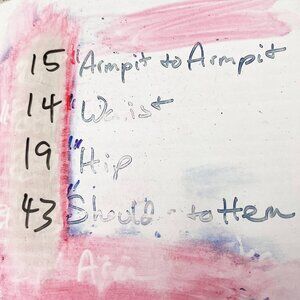 15" Armpit to Armpit
14" Waist
19" Hip
43" Should - to Hem
Arm